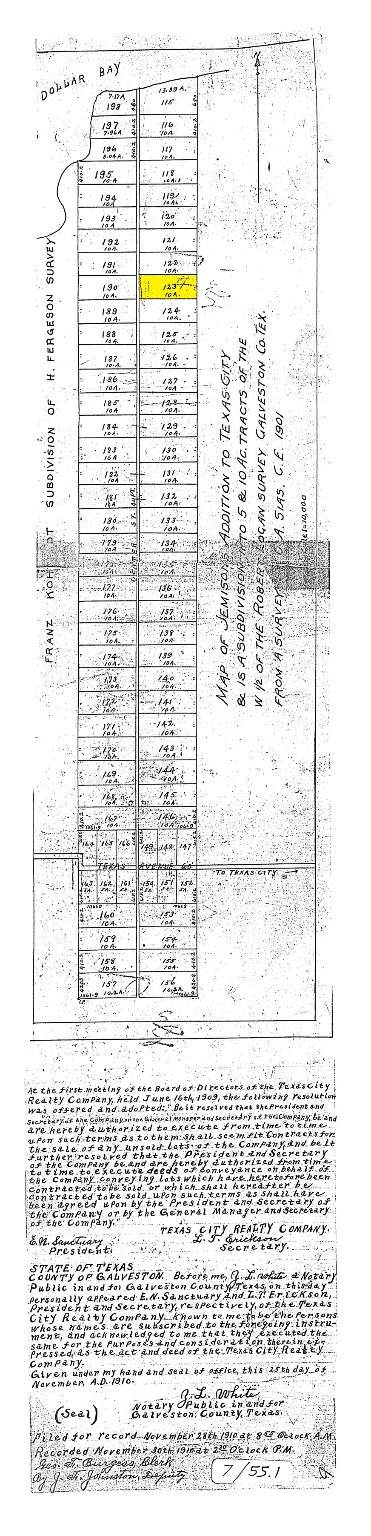 DOLLAR BAY
7.17A.
198
13.39 A.
115
197
7.96A
116
10A.
196
8.04A.
117
10A.
195
10.A
118
10A.
194
10A
119
10A.
193
10A
120
10A.
192
10A
121
10A.
191
10A
122
10A.
190
10A.
123
10A.
189
10A
124
10A.
188
10A
125
10A.
187
10A.
126
10A.
186
10A.
127
10A.
185
10A
128
10A.
184
10A
129
10A.
183
130
10A
182
10A
131
10A.
181
132
10A.
180
10A
133
10A.
179
10A
134
10A.
177
10A.
136
10A.
176
10A
137
10A.
175
10A
138
10A.
174
10A
139
10A.
173
10A
140
10A.
172
10A
141
10A.
171
10A
142
10A.
170
10A.
143
10A.
169
10A
144
10A.
168
10A
145
10A.
167
10A
146
10A
164 165 166
149 148 147
TEXAS AVENUE 60'
TO TEXAS CITY
163 162 161
5A. 5A. 5A.
150 151 152
5A. 5A. 5A.
160
10A
153
10A.
159
10A.
154
10A.
158
10A.
155
10A.
157
10.2A
156
10.2A
FRANZ KOH DT SUBDIVISION OF H. FERGESON SURVEY
MAP OF JEMISON'S ADDITION TO TEXAS CITY
& IS A SUBDIVISION INTO 5 & 10 AC. TRACTS OF THE
W 1/2 OF THE ROBERT LOGAN SURVEY GALVESTON CO. TEX.
FROM A SURVEY A. SIAS. C.E. 1901
At the first meeting of the Board of Directors of the Texas City
Realty Company, held June 16th, 1909, the following resolution
was offered and adopted: "Be it resolved that the President and
Secretary of the Company, or the General Manager and Secretary of the Company, be and
are hereby authorized to execute from time to time
upon such terms as to them shall seem fit Contracts for
the sale of any unsold lots of the Company, and be it
further resolved that the President and Secretary
of the Company be and are hereby authorized from time
to time to execute deeds of conveyance on behalf of
the Company conveying lots which have heretofore been
contracted to be sold or which shall hereafter be
contracted to be sold upon such terms as shall have
been agreed upon by the President and Secretary of
the Company or by the General Manager and Secretary
of the Company."
TEXAS CITY REALTY COMPANY.
E.N. Sanctuary
President.
L. T. Erickson
Secretary.
STATE OF TEXAS
COUNTY OF GALVESTON. Before me, J. L. White a Notary
Public in and for Galveston County, Texas, on this day
personally appeared E.N. Sanctuary and L.T. Erickson,
President and Secretary, respectively, of the Texas
City Realty Company. Known to me to be the persons
whose names are subscribed to the foregoing instru-
ment, and acknowledged to me that they executed the
same for the purposes and consideration therein ex-
pressed, as the act and deed of the Texas City Realty
Company.
Given under my hand and seal of office, this 25th day of
November, A.D. 1910.
J. L. White
(Seal)
Notary Public in and for
Galveston County, Texas.
Filed for record November 28th 1910 at 8:25 O'clock, A.M.
Recorded November 30th 1910 at 2:35 O'clock P.M.
Geo. F. Burgess Clerk
By J. F. Johnston, Deputy
7/55.1